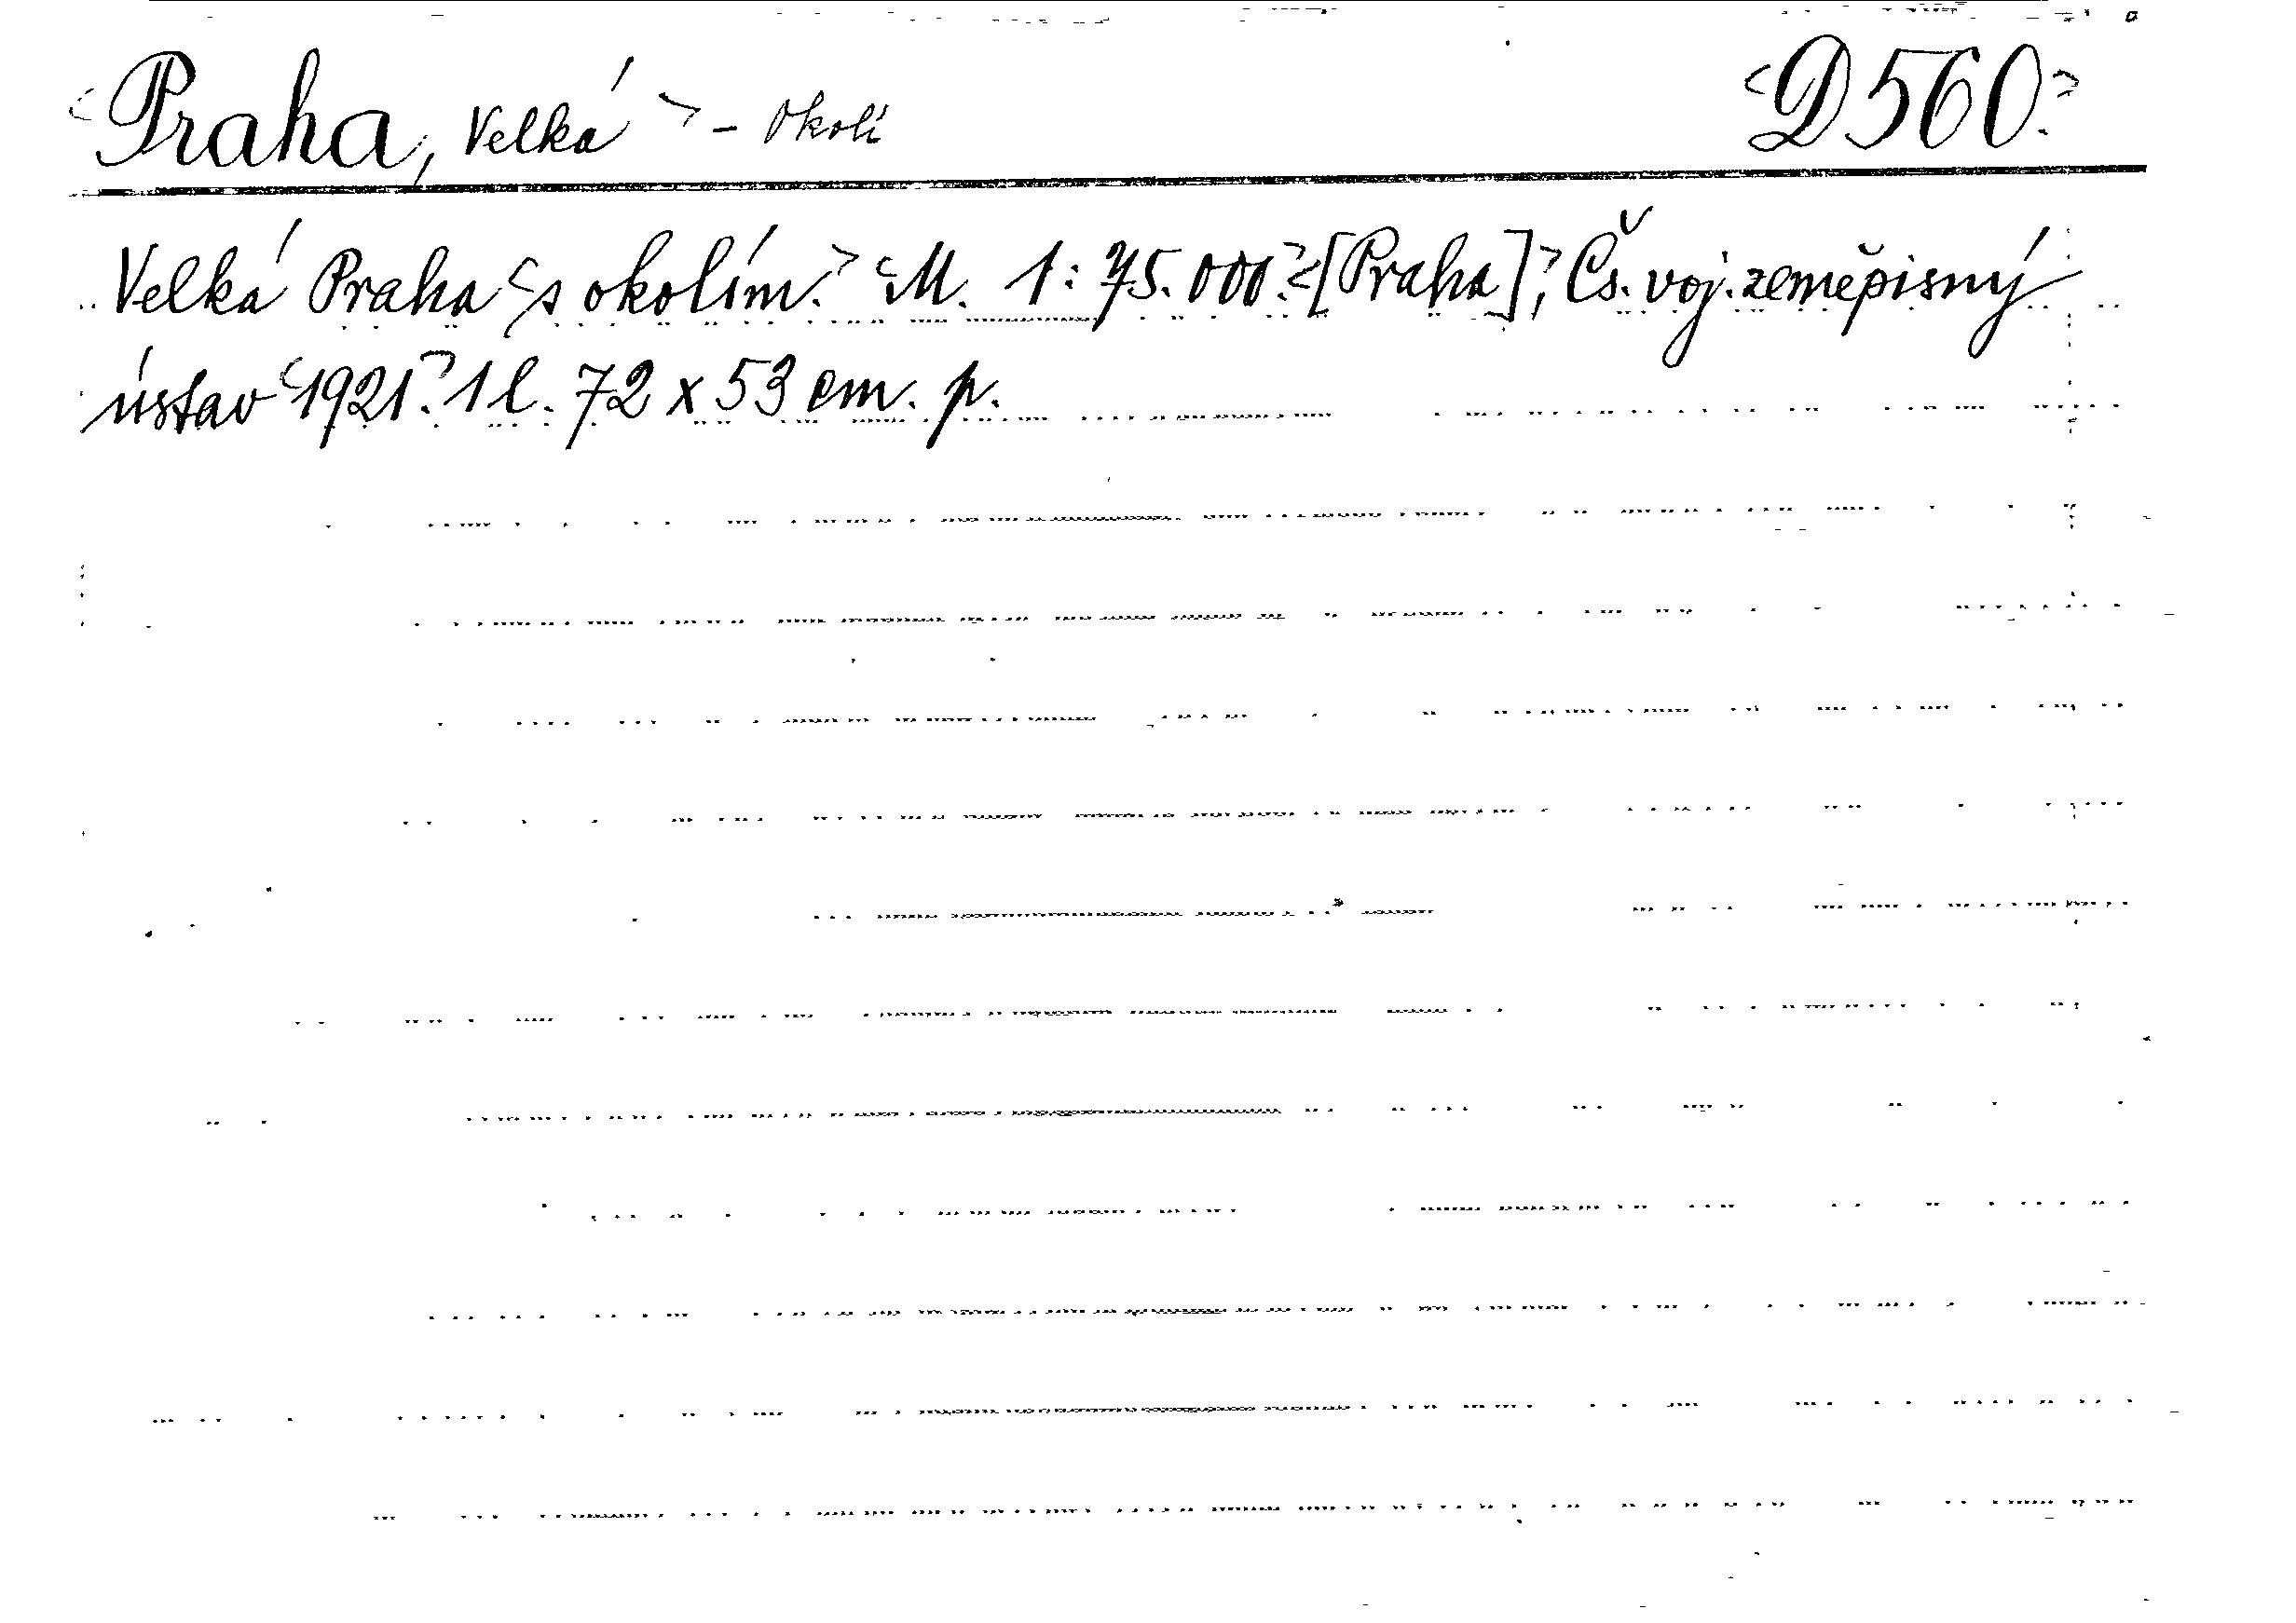 <Praha, Velká> - okolí <D 560.>
Velká Praha <s okolím.> <M. 1:75.000.> <[Praha],> Čs. voj. zeměpisný
ústav <1921.> 1 l. 72 x 53 cm. p.